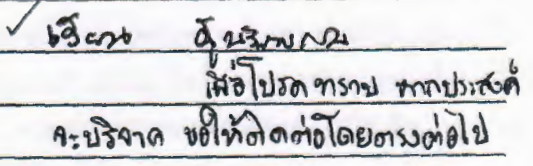 เรียน ผู้บริหาร
เพื่อโปรดทราบ หากประสงค์
จะบริจาค ขอให้ติดต่อโดยตรงต่อไป